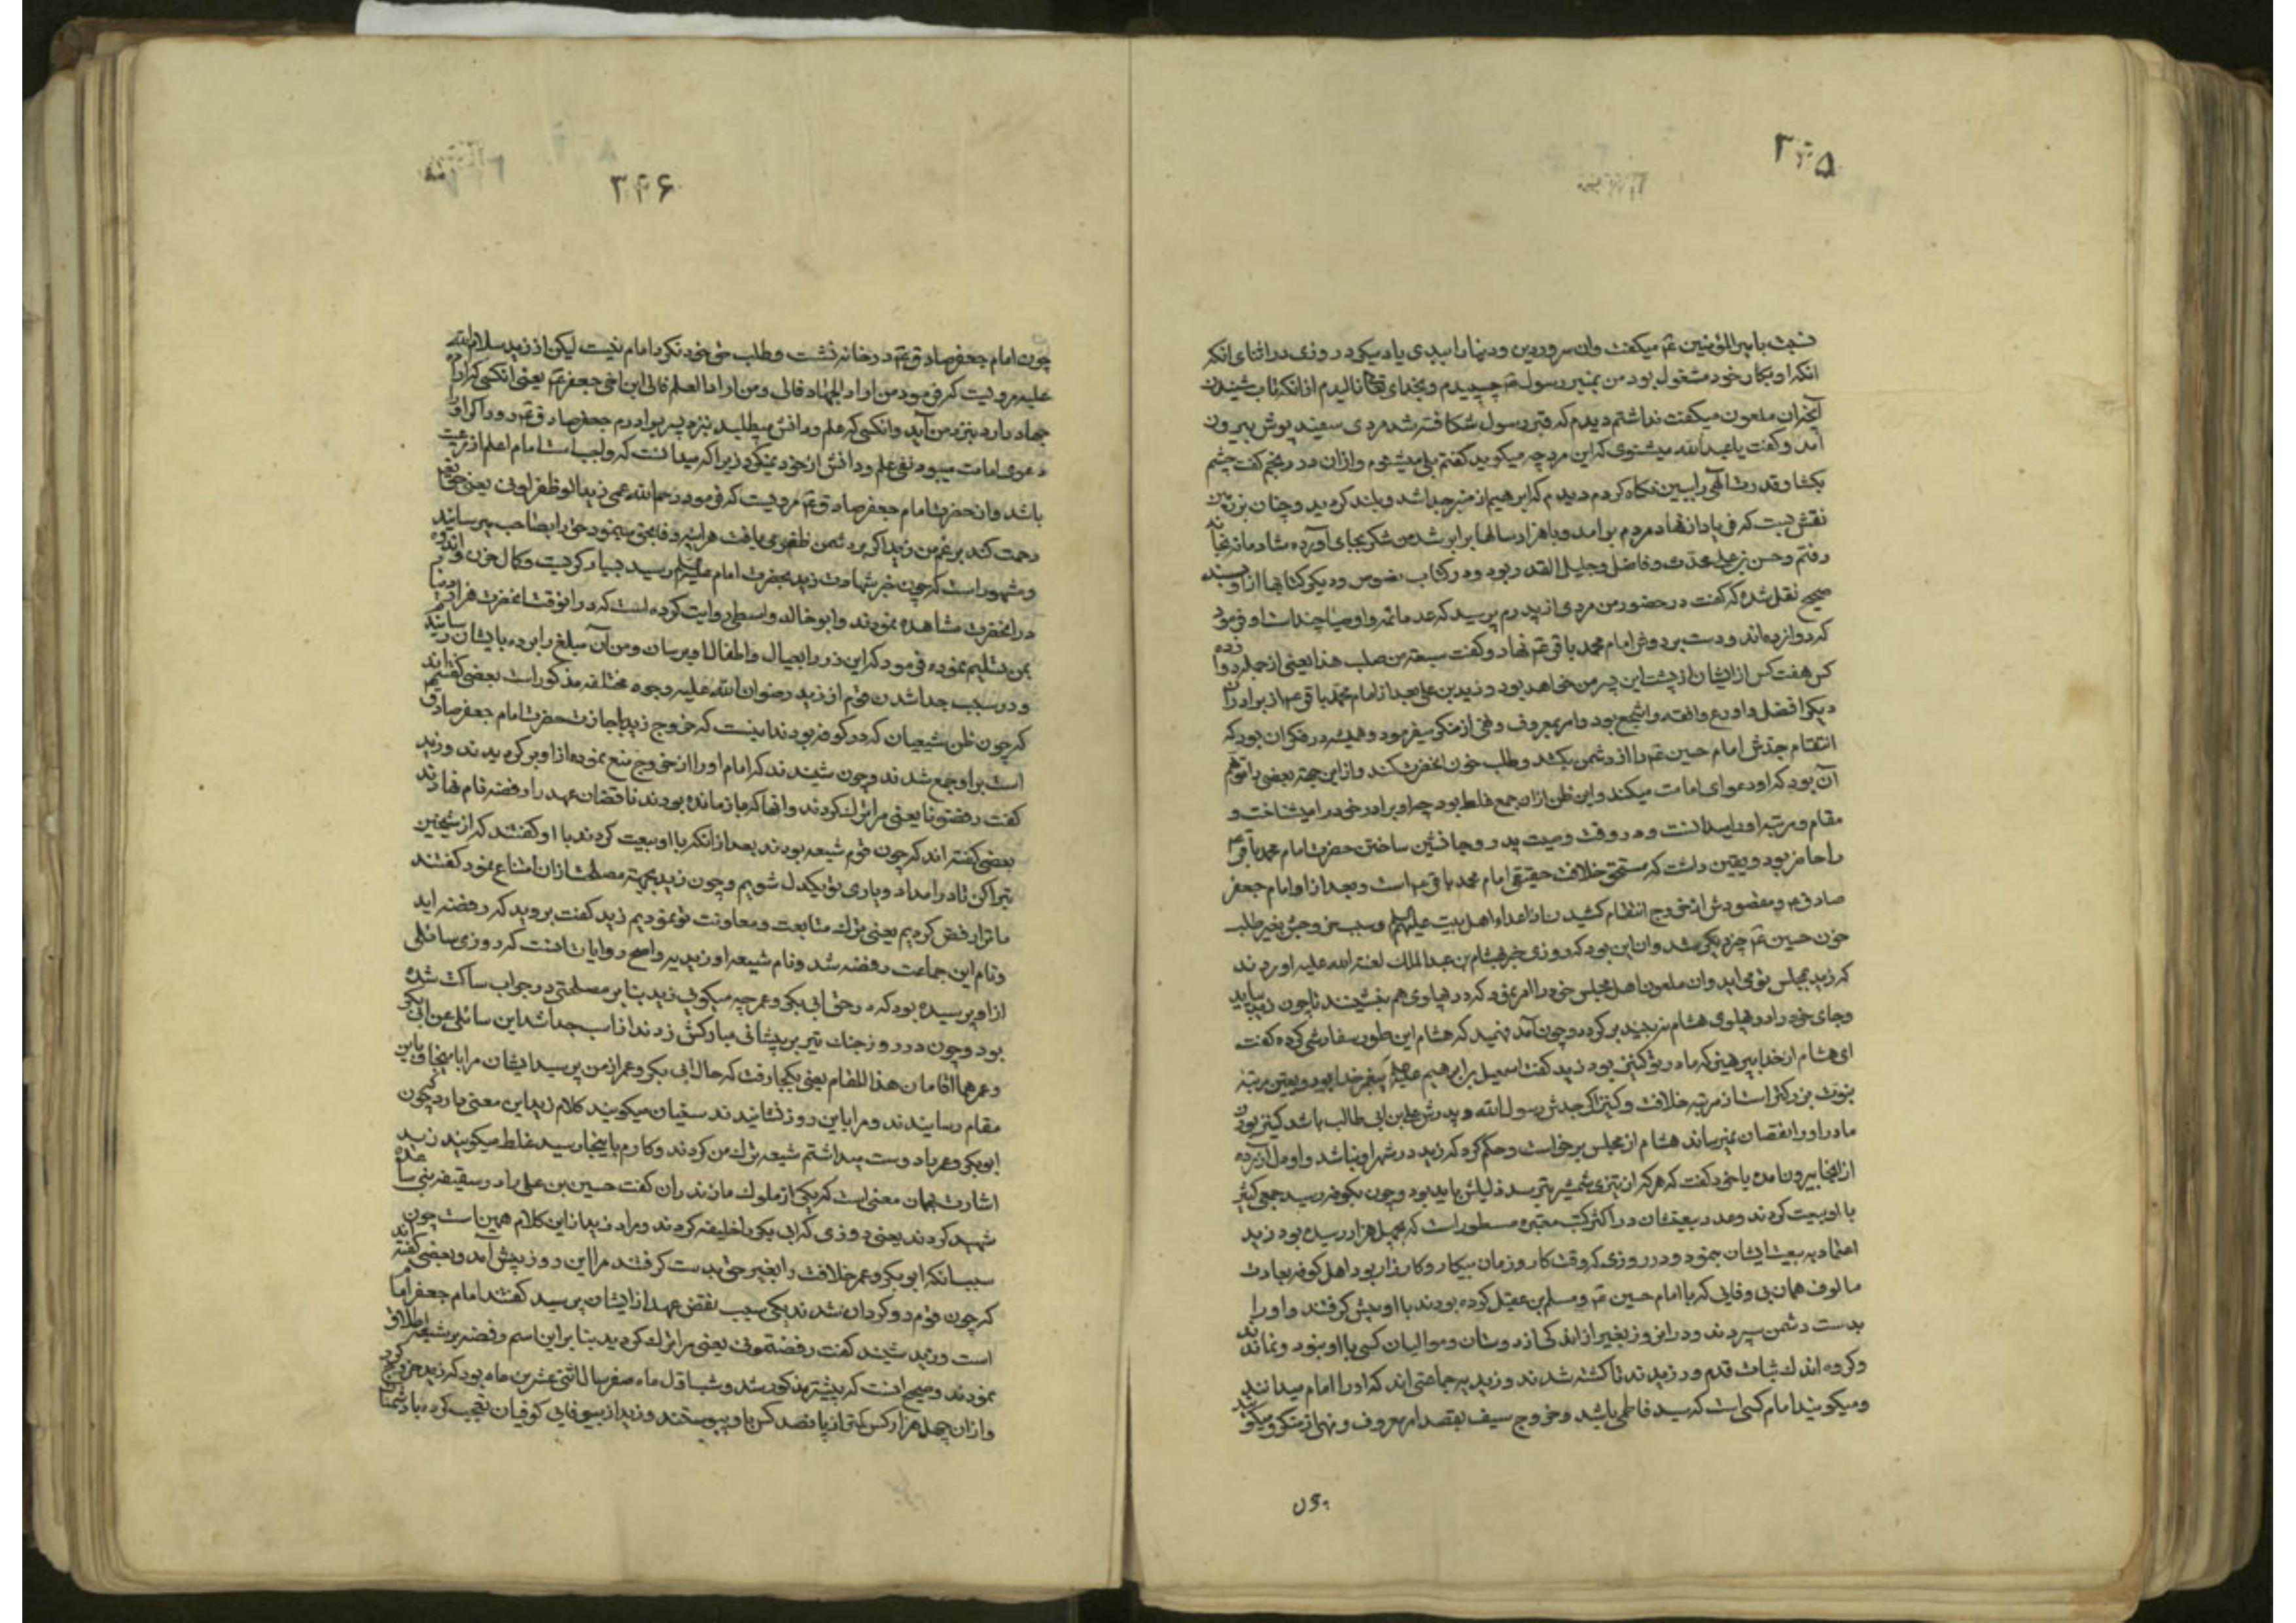 ۳۴۵
نسبت بامیرالمؤمنین عم میکفت وان سرور دین ودنیا را ببدی یاد میکرد روزی در اثنای انکه
انکه او بکار خود مشغول بود من بمنبر رسول عم چسپیدم وبخدای تعالی نالیدم از انکه تاب شنیدن
آنچه ان ملعون میکفت نداشتم دیدم که قبر رسول شکافته شد مردی سفید پوش بیرون
آمد وکفت یا عبدالله میشنوی که این مرد چه میکوید کفتم بلی میشنوم وازان در رنجم کفت چشم
بکشا وقدرت الهی را ببین نکاه کردم دیدم که ابرهیم از منبر جدا شد وبلند کردید وچنان بزمین
نقش بست که فریاد از نهاد مردم برامد وباهزار سالها برابر شد من شکر بجای آورده شادمانه بخانه
رفتم وحسن بن علی محدث وفاضل وجلیل القدر بود ودر کتاب نصوص ودیکر کتابها از او بسند
صحیح نقل شده که کفت در حضور من مردی از پدرم پرسید که عدد ائمه واوصیا چنداست او فرمود
که دوازده‌اند ودست بر دوش امام محمد باقر عم نهاد وکفت سبعة من صلب هذا یعنی از جمله دوازده
کس هفت کس از ایشان از پشت این پسر من خواهد بود وزید بن علی بعد از امام محمد باقر عم از برادران
دیکر افضل واورع وافقه واشجع بود وامر بمعروف ونهی از منکر میفرمود وهمیشه در فکر ان بود که
انتقام جدش امام حسین عم را از دشمن بکشد وطلب خون انحضرت کند وازاین جهة بعضی را توهم
آن بود که او دعوای امامت میکند واین ظن ازان جمع غلط بود چه او برادر خود را میشناخت و
مقام ومرتبه او را میدانست ودر وقت وصیت پدر وجانشین ساختن حضرت امام محمد باقر عم
را حاضر بود ویقین دانست که مستحق خلافت حقیقی امام محمد باقر عم است وبعد از او امام جعفر
صادق عم ومقصودش از خروج انتقام کشیدن از اعداء اهل بیت علیهم وسبب خروجش بغیر طلب
خون حسین عم چیز دیکر شد وان این بود که روزی خبر بهشام بن عبدالملک لعنة الله علیه اوردند
که زید بمجلس تو می‌اید وان ملعون اهل مجلس خود را امر نمود که در پهلوی هم بنشینند تا چون زید بیاید
وجای خود را در پهلوی هشام نزجید بر کرده وچون آمد فهمید که هشام این طور سفارش کرده کفت
ای هشام از خدا بپرهیز که مادر تو کنیز بود زید کفت اسمعیل بن ابرهیم علیهم پیغمبر خدا بود ویقین مرتبه
نبوت بزرکتر است از مرتبه خلافت وکسی را که جدش رسول الله وپدرش علی بن ابی طالب باشد کنیز بودن
مادر او را نقصان نمیرساند هشام از مجلس برخواست وحکم کرد که زید در شهر او نباشد واو ملال آزرده
از انجا بیرون امده با خود کفت که هرکه از تیزی شمشیر بترسد ذلیلش باید بود وچون بکوفه رسید جمعی کثیر
با او بیعت کردند وعدد بیعتشان در اکثر کتب معتبره مسطور است که بچهل هزار رسیده بود زید
اعتماد بر بیعت ایشان نمود ودر روزی که وقت کار وزمان بیکار وکارزار بود اهل کوفه بعادت
مالوف همان بی وفایی که با امام حسین عم ومسلم بن عقیل کرده بودند با او پیش کرفتند واو را
بدست دشمن سپردند ودر انروز بغیر از اندکی از دوستان وموالیان کسی با او نبود ونماندند
وکروه اندک ثبات قدم ورزیدند تا کشته شدند وزیدیه جماعتی اند که او را امام میدانند
ومیکویند امام کسی است که سید فاطمی باشد وخروج سیف بقصد امر بمعروف ونهی از منکر ومیکویند
چون
۳۴۶
چون امام جعفر صادق عم در خانه نشست وطلب حق خود نکرد امام نیست لیکن از زید سلام الله
علیه مرویست که فرمود من اراد الجهاد فالی ومن اراد العلم فالی ابن اخی جعفر عم یعنی انکسی که اراده
جهاد دارد بنزد من آید وانکسی که علم ودانش میطلبد بنزد پسر برادرم جعفر صادق عم رود واکر او را
دعوی امامت میبود نفی علم ودانش از خود نمیکرد زیرا که میدانست که واجب است امام اعلم از رعیت
باشد وان حضرت امام جعفر صادق عم مرویست که فرمود رحم الله عمی زیدا لو ظفر لوفی یعنی حق تعالی
رحمت کند بر عم من زید اکر بر دشمن ظفر می یافت هر اینه وفا بحق مینمود حق را بصاحب میرسانید
ومشهور است که چون خبر شهادت زید بحضرت امام علیه‌السلم رسید بسیار کریست وکمال حزن واندوه
در انحضرت مشاهده نمودند وابو خالد واسطی روایت کرده است که در انوقت انحضرت هزار دینار
بمن تسلیم نموده فرمود که این زر را بعیال واطفال او برسان ومن آن مبلغ را برده بایشان رسانیدم
ودر سبب جدا شدن قوم از زید رضوان الله علیه وجوه مختلفه مذکور است بعضی کفته‌اند
که چون ظن شیعیان که در کوفه بودند این‌ست که خروج زید باجازت حضرت امام جعفر صادق
است بر او جمع شدند وچون شنیدند که امام او را از خروج منع نموده از او بر کردیدند وزید
کفت رفضتونا یعنی مرا ترک کردند وانها که باز مانده بودند ناقضان عهد را رفضه نام نهادند
بعضی کفته‌اند که چون قوم شیعه بودند بعد از انکه با او بیعت کردند با او کفتند که از شیخین
تبرا کن تا در امداد ویاری تو یکدل شویم وچون زید بجهة مصلحت ازان امتناع نمود کفتند
ما ترا رفض کردیم یعنی ترک متابعت ومعاونت تو نمودیم زید کفت بروید که رفضه اید
ونام این جماعت رفضه شد ونام شیعه او زیدیه واصح روایات انست که روزی سائلی
از او پرسیده بود که در حق ابی بکر وعمر چه میکوئی زید بنابر مصلحتی در جواب ساکت شده
بود وچون در روز جنک تیر بر پیشانی مبارکش زدند از اسب جدا شد این سائلی عن ابی بکر
وعمر هما اقامان هذا المقام یعنی بکجا رفت که حال ابی بکر وعمر از من پرسید ایشان مرا باینجا وباین
مقام رسانیدند ومرا باین روز نشانیدند سفیان میکویند کلام زید این معنی دارد که چون
ابوبکر وعمر را دوست میداشتم شیعه ترک من کردند وکارم باینجا رسید غلط میکویند زید
اشارت بهمان معنی است که یکی از ملوک مازندران کفت حسین بن علی را در سقیفه بنی ساعده
شهید کردند یعنی روزی که ابی بکر را خلیفه کردند ومراد زید از این کلام همین است چون
سبب انکه ابوبکر وعمر خلافت را بغیر حق بدست کرفتند مرا این روز پیش آمد وبعضی کفته‌اند
که چون قوم رو کردان شدند یکی سبب نقض عهد از ایشان پرسید کفتند امام جعفر امام
است وزید شنید کفت رفضتمونی یعنی مرا ترک کردید بنا بر این اسم رفضه بر شیعه اطلاق
نمودند وصحیح انست که پیشتر مذکور شد وشب اول ماه صفر سال اثنی عشرین ماه بود که زید خروج کرد
وازان چهل هزار کس کمتر از پانصد کس باو پیوستند وزید از بیوفایی کوفیان تعجب کرده با دشمنان